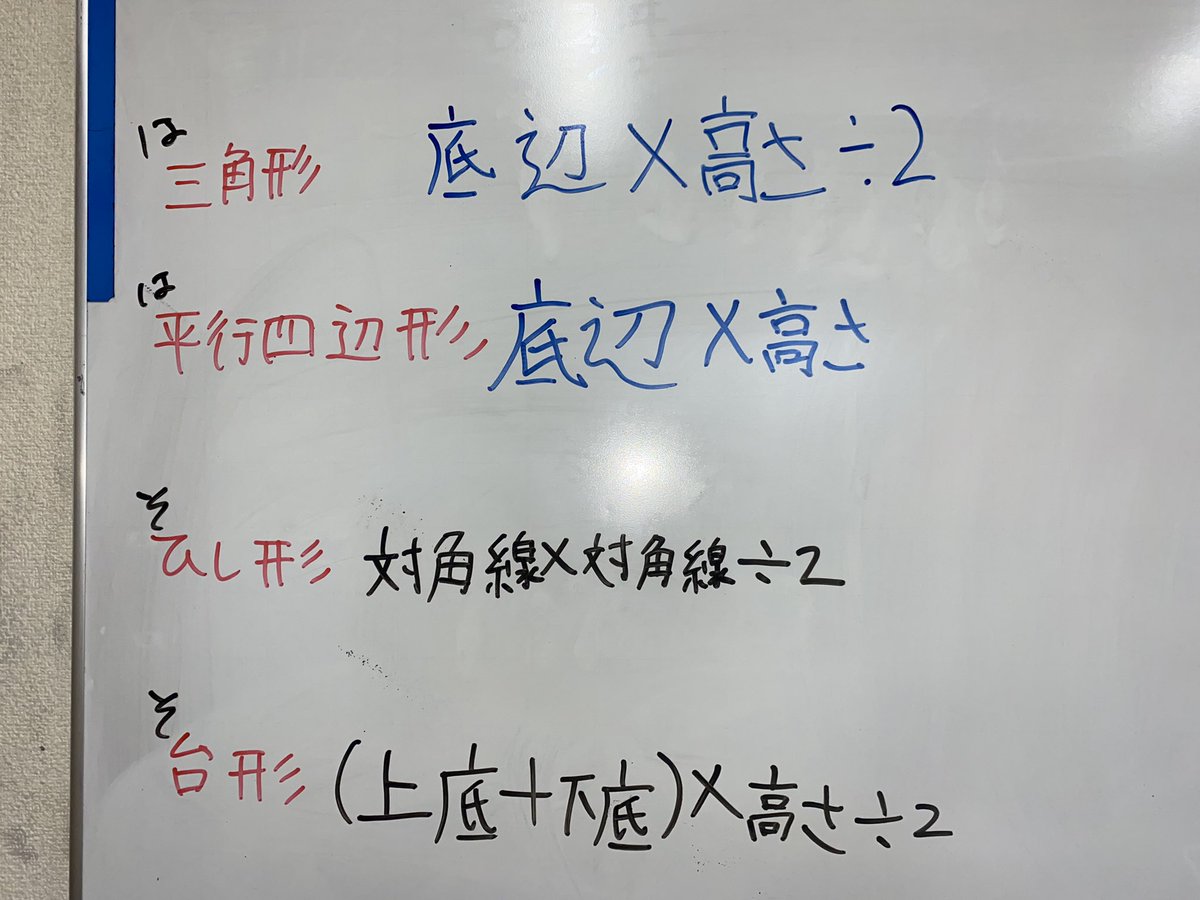 は
三角形 底辺×高さ÷2
は
平行四辺形 底辺×高さ
そ
ひし形 対角線×対角線÷2
そ
台形 (上底+下底)×高さ÷2